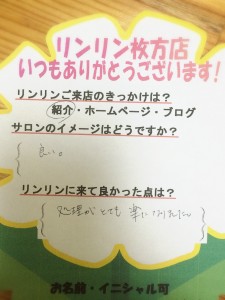 リンリン枚方店
いつもありがとうございます!
リンリンご来店のきっかけは?
紹介・ホームページ・ブログ
サロンのイメージはどうですか?
良い。
リンリンに来て良かった点は?
処理がとても楽になりました
お名前・イニシャル可